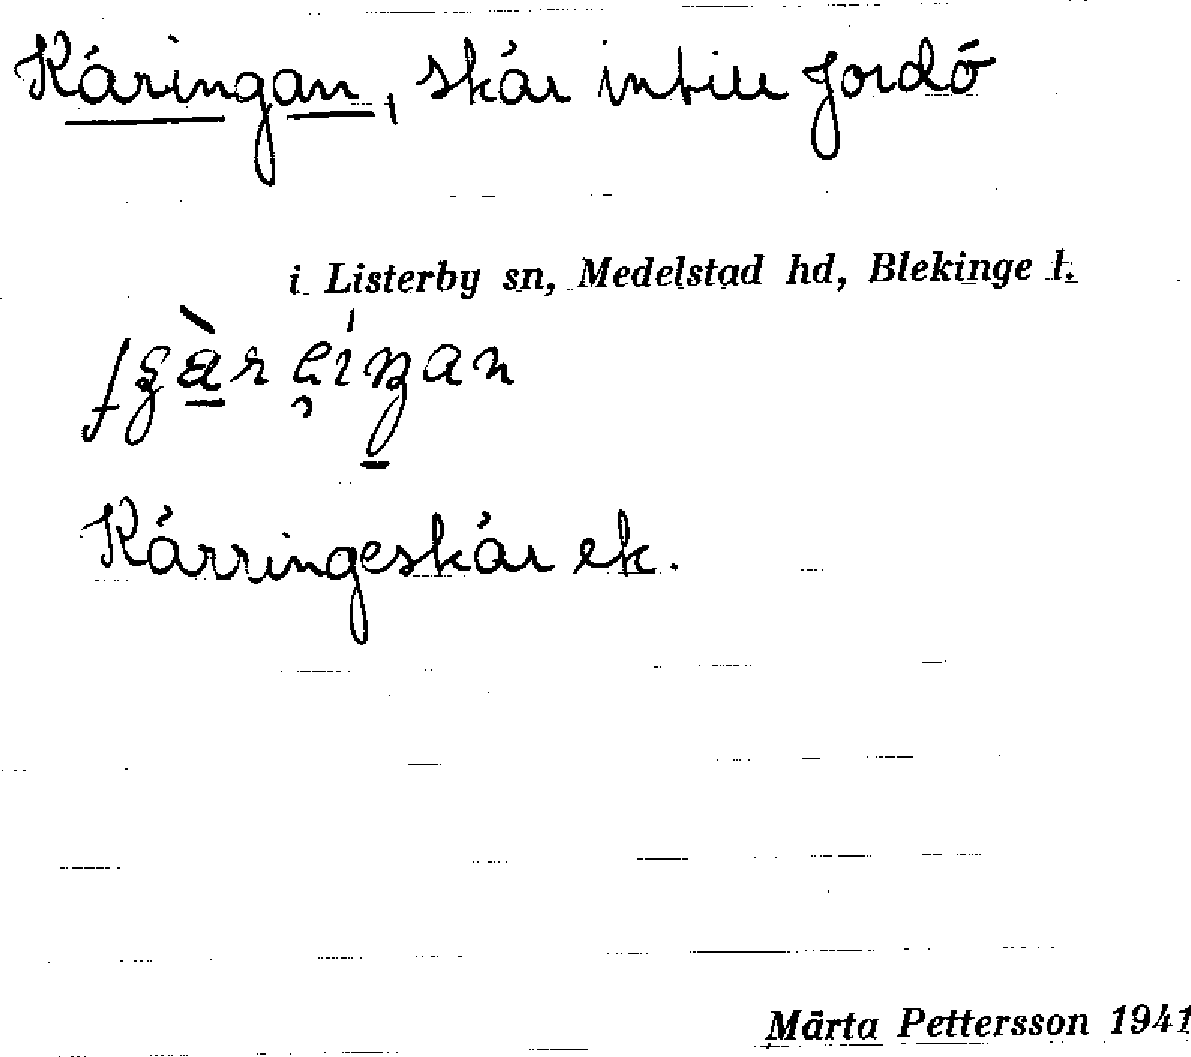 Käringan, skär intill Jordö
i Listerby sn, Medelstad hd, Blekinge l.
Kärringeskär ek.
Märta Pettersson 1941